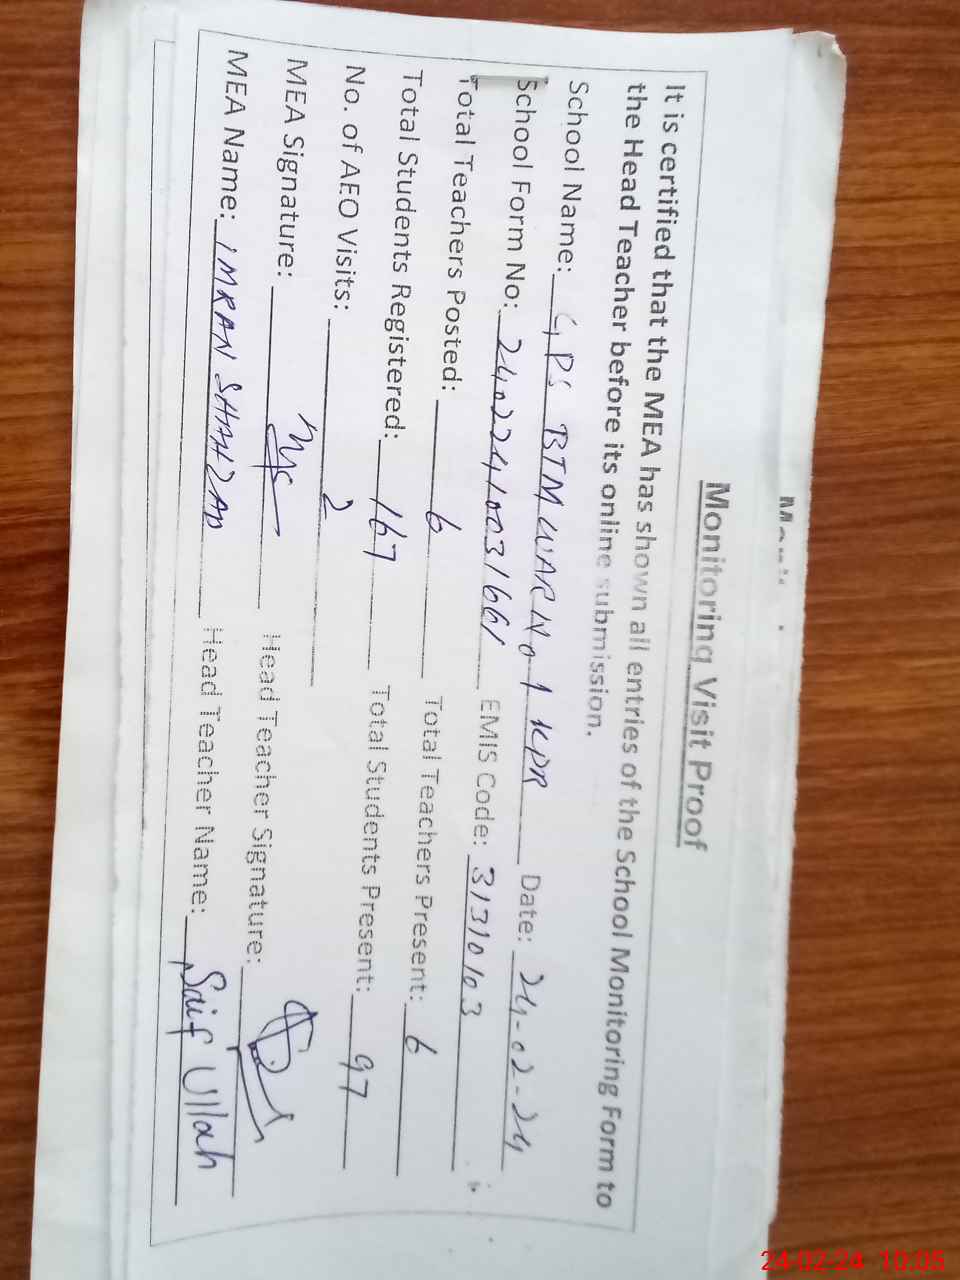 Monitoring Visit Proof
It is certified that the MEA has shown all entries of the School Monitoring Form to
the Head Teacher before its online submission.
School Name: GPS BTM WAR No 1 KPR Date: 24-02-24
School Form No: 24022410031661 EMIS Code: 31310103
Total Teachers Posted: 6 Total Teachers Present: 6
Total Students Registered: 167 Total Students Present: 97
No. of AEO Visits: 2
MEA Signature: Head Teacher Signature:
MEA Name: IMRAN SHAHZAD Head Teacher Name: Saif Ullah
24-02-24 10:05